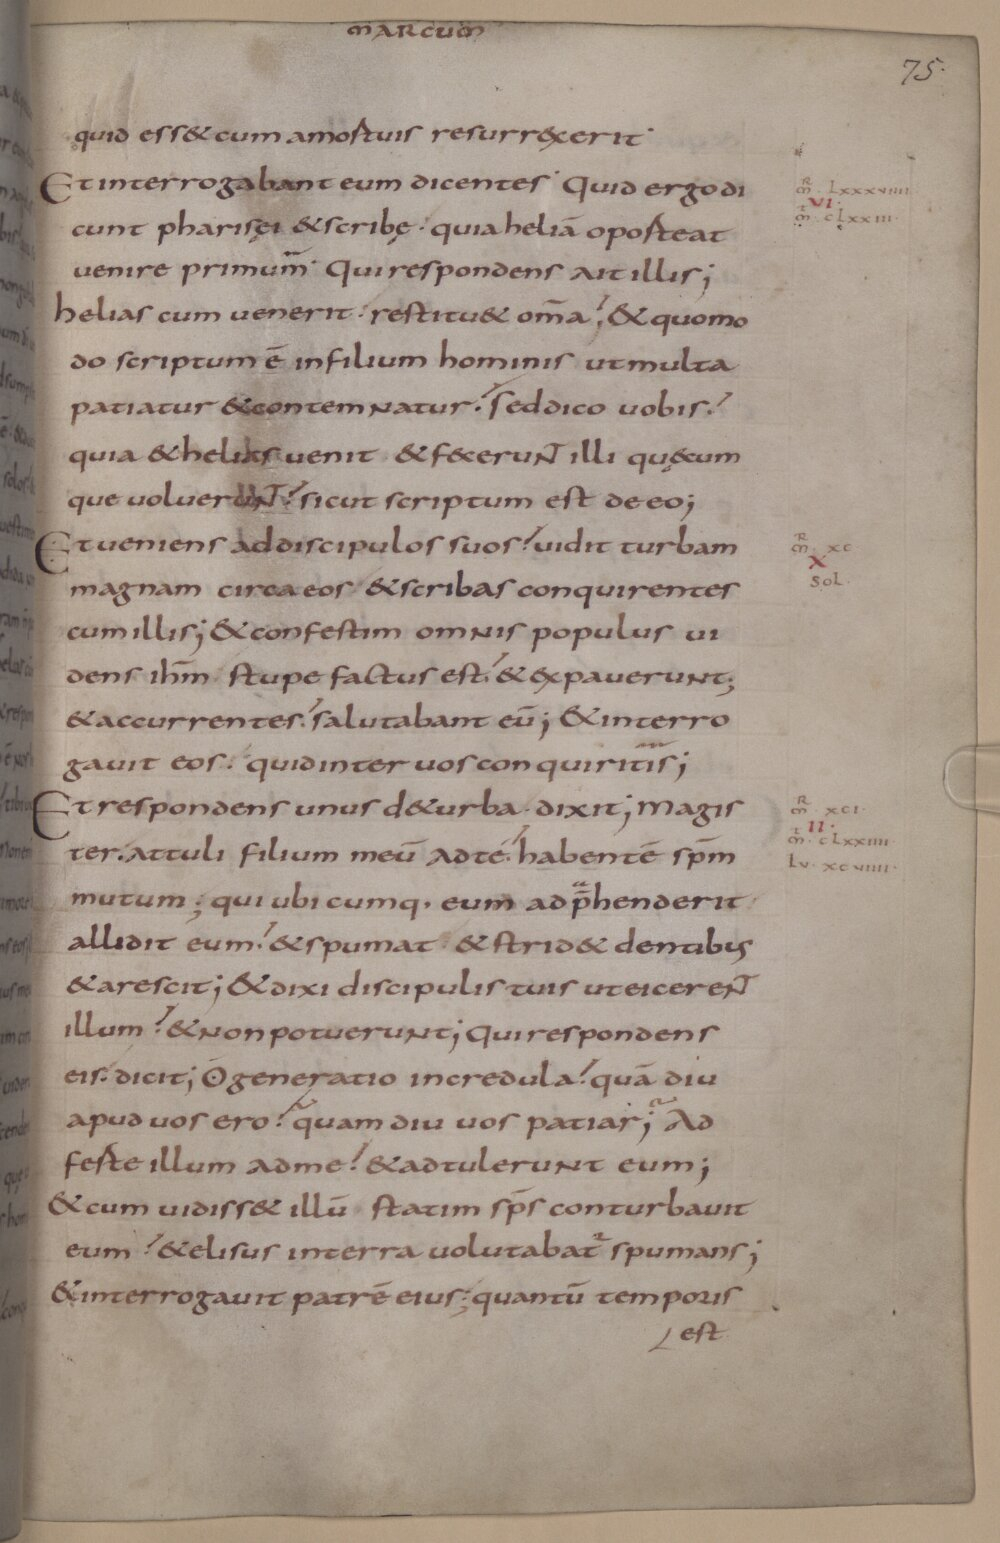 MARCUM
75.
quid ess& cum amortuis resurrexerit·
Et interrogabant eum dicentes· Quid ergo di
cunt pharisęi & scribę· quia heliā oporteat
venire primum̄· Qui respondens ait illis;
helias cum venerit· restitu& om̄a; & quomo
do scriptum ē in filium hominis ut multa
patiatur & contemnatur. Sed dico vobis.
quia & helias venit & fecerunt illi quęcum
que voluerunt. sicut scriptum est de eo;
Et veniens ad discipulos suos. vidit turbam
magnam circa eos & scribas conquirentes
cum illis; & confestim omnis populus vi
dens ih̄m stupefactus est. & expaverunt;
& accurrentes. salutabant eū; & interro
gavit eos. quid inter vos conquiritis;
Et respondens unus d& urba· dixit; Magis
ter. Attuli filium meū ad te. habentē sp̄m
mutum; qui ubicumq· eum adp̄henderit
allidit eum. & spumat & strid& dentibus
& arescit; & dixi discipulis tuis ut eicerent
illum. & non potuerunt; Qui respondens
eis. dicit; O generatio incredula. quā diu
apud vos ero. quam diu vos patiar; Ad
ferte illum ad me. & adtulerunt eum;
& cum vidiss& illū statim sp̄s conturbavit
eum. & elisus in terra volutabat spumans;
& interrogavit patrē eius; quantū temporis
est
m̄R· Lxxxviiii
VI·
m̄t· cLxxiii·
m̄R· xc
X
SOL·
m̄R· xci·
II·
m̄t· cLxxiiii·
Lu· xcviiii·